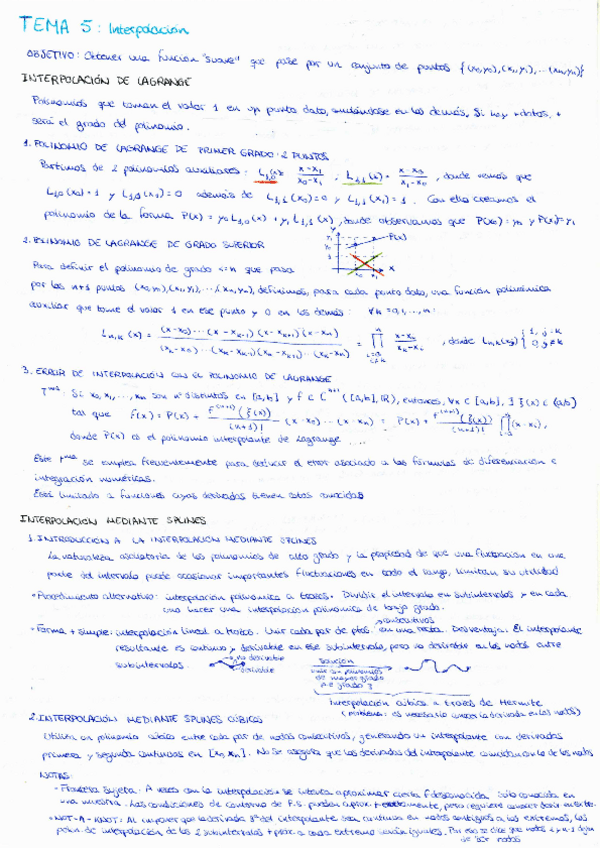 TEMA 5: Interpolación
OBJETIVO: Obtener una función "suave" que pase por un conjunto de puntos {(x₀,y₀),(x₁,y₁),...(xₙ,yₙ)}
INTERPOLACIÓN DE LAGRANGE
Polinomios que toman el valor 1 en un punto dato, anulándose en los demás. Si hay + datos, +
será el grado del polinomio.
1. POLINOMIO DE LAGRANGE DE PRIMER GRADO: 2 PUNTOS
Partimos de 2 polinomios auxiliares: L₁,₀(x)= x-x₁/x₀-x₁ ; L₁,₁(x)= x-x₀/x₁-x₀, donde vemos que
L₁,₀(x₀)=1 y L₁,₀(x₁)=0 además de L₁,₁(x₀)=0 y L₁,₁(x₁)=1. Con ello creamos el
polinomio de la forma P(x)=y₀L₁,₀(x)+y₁L₁,₁(x), donde observamos que P(x₀)=y₀ y P(x₁)=y₁
2. POLINOMIO DE LAGRANGE DE GRADO SUPERIOR
y P(x) y₁ y₀ 1 x₀ x₁ x
Para definir el polinomio de grado <=n que pasa
por los n+1 puntos (x₀,y₀),(x₁,y₁),...,(xₙ,yₙ), definimos, para cada punto dato, una función polinómica
auxiliar que tome el valor 1 en ese punto y 0 en los demás: ∀k=0,1,...,n:
Lₙ,ₖ(x) = (x-x₀)···(x-xₖ₋₁)(x-xₖ₊₁)(x-xₙ) / (xₖ-x₀)···(xₖ-xₖ₋₁)(xₖ-xₖ₊₁)···(xₖ-xₙ) = ∏ x-xᵢ/xₖ-xᵢ, donde Lₙ,ₖ(xⱼ){1, j=k 0, j≠k
3. ERROR DE INTERPOLACIÓN CON EL POLINOMIO DE LAGRANGE
Tᵐᵃ: Si x₀,x₁,...,xₙ son nº distintos en [a,b] y f ∈ Cⁿ⁺¹([a,b],ℝ), entonces, ∀x ∈ [a,b], ∃ ξ(x) ∈ (a,b)
tal que f(x) = P(x) + f⁽ⁿ⁺¹⁾(ξ(x))/(n+1)! (x-x₀)···(x-xₙ) = P(x) + f⁽ⁿ⁺¹⁾(ξ(x))/(n+1)! ∏(x-xᵢ),
donde P(x) es el polinomio interpolante de Lagrange ....
Este Tᵐᵃ se emplea frecuentemente para deducir el error asociado a las fórmulas de diferenciación e
integración numéricas.
Está limitado a funciones cuyas derivadas tienen cotas conocidas
INTERPOLACIÓN MEDIANTE SPLINES
1. INTRODUCCIÓN A LA INTERPOLACIÓN MEDIANTE SPLINES
La naturaleza oscilatoria de los polinomios de alto grado y la propiedad de que una fluctuación en una
parte del intervalo puede ocasionar importantes fluctuaciones en todo el rango, limitan su utilidad
• Procedimiento alternativo: interpolación polinómica a trozos. Dividir el intervalo en subintervalos y en cada
uno hacer una interpolación polinómica de bajo grado.
• Forma + simple: interpolación lineal a trozos. Unir cada par de ptos. consecutivos con una recta. Desventaja: El interpolante
resultante es continuo y derivable en ese subintervalo, pero no derivable en los nodos entre
subintervalos. no derivable derivable
solución
usar un polinomio
de mayor grado
Interpolación cúbica a trozos de Hermite
(problema: es necesario conocer la derivada en los nodos)
2. INTERPOLACIÓN MEDIANTE SPLINES CÚBICOS
Utiliza un polinomio cúbico entre cada par de nodos consecutivos, generando un interpolante con derivadas
primera y segunda continuas en [x₀,xₙ]. No se asegura que las derivadas del interpolante coincidan con la de los nodos
NOTAS:
• Frontera Sujeta: A veces con la interpolación se intenta aproximar cierta f desconocida solo conocida en
una muestra. Las condiciones de contorno de F.S. pueden aprox. + exactamente, pero requiere conocer deriv.
• NOT-A-KNOT: Al imponer que la derivada 3ª del interpolante sea continua en nodos contiguos a los extremos, los
polin. de interpolación de los 2 subintervalos + próx. a cada extremo serán iguales. Por eso se dice que nodos 1 y n-1 dejan
de ser nodos